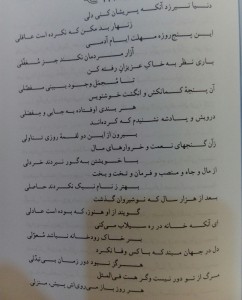 دنیا نیرزد آنکه پریشان کنی دلی
زنهار بد مکن که نکرده است عاقلی
این پنج‌روزه مهلت ایام آدمی
آزار مردمان نکند جز مغفلی
باری نظر به خاک عزیزان رفته کن
تا مجمل وجود ببینی مفصلی
آن پنجهٔ کمانکش و انگشت خوشنویس
هر بندی اوفتاده به جایی و مفصلی
درویش و پادشه نشنیدم که کرده‌اند
بیرون از این دو لقمهٔ روزی تناولی
زآن گنجهای نعمت و خروارهای مال
با خویشتن به گور نبردند خردلی
از مال و جاه و منصب و فرمان و تخت و بخت
بهتر ز نام نیک نکردند حاصلی
بعد از هزار سال که نوشیروان گذشت
گویند از او هنوز که بوده است عادلی
ای آنکه خانه در ره سیلاب می‌کنی
بر خاک رودخانه نباشد معولی
دل در جهان مبند که با کس وفا نکرد
هرگز نبود دور زمان بی تبدلی
مرگ از تو دور نیست وگر هست فی‌المثل
هر روز باز می‌روی‌اش پیش، منزلی